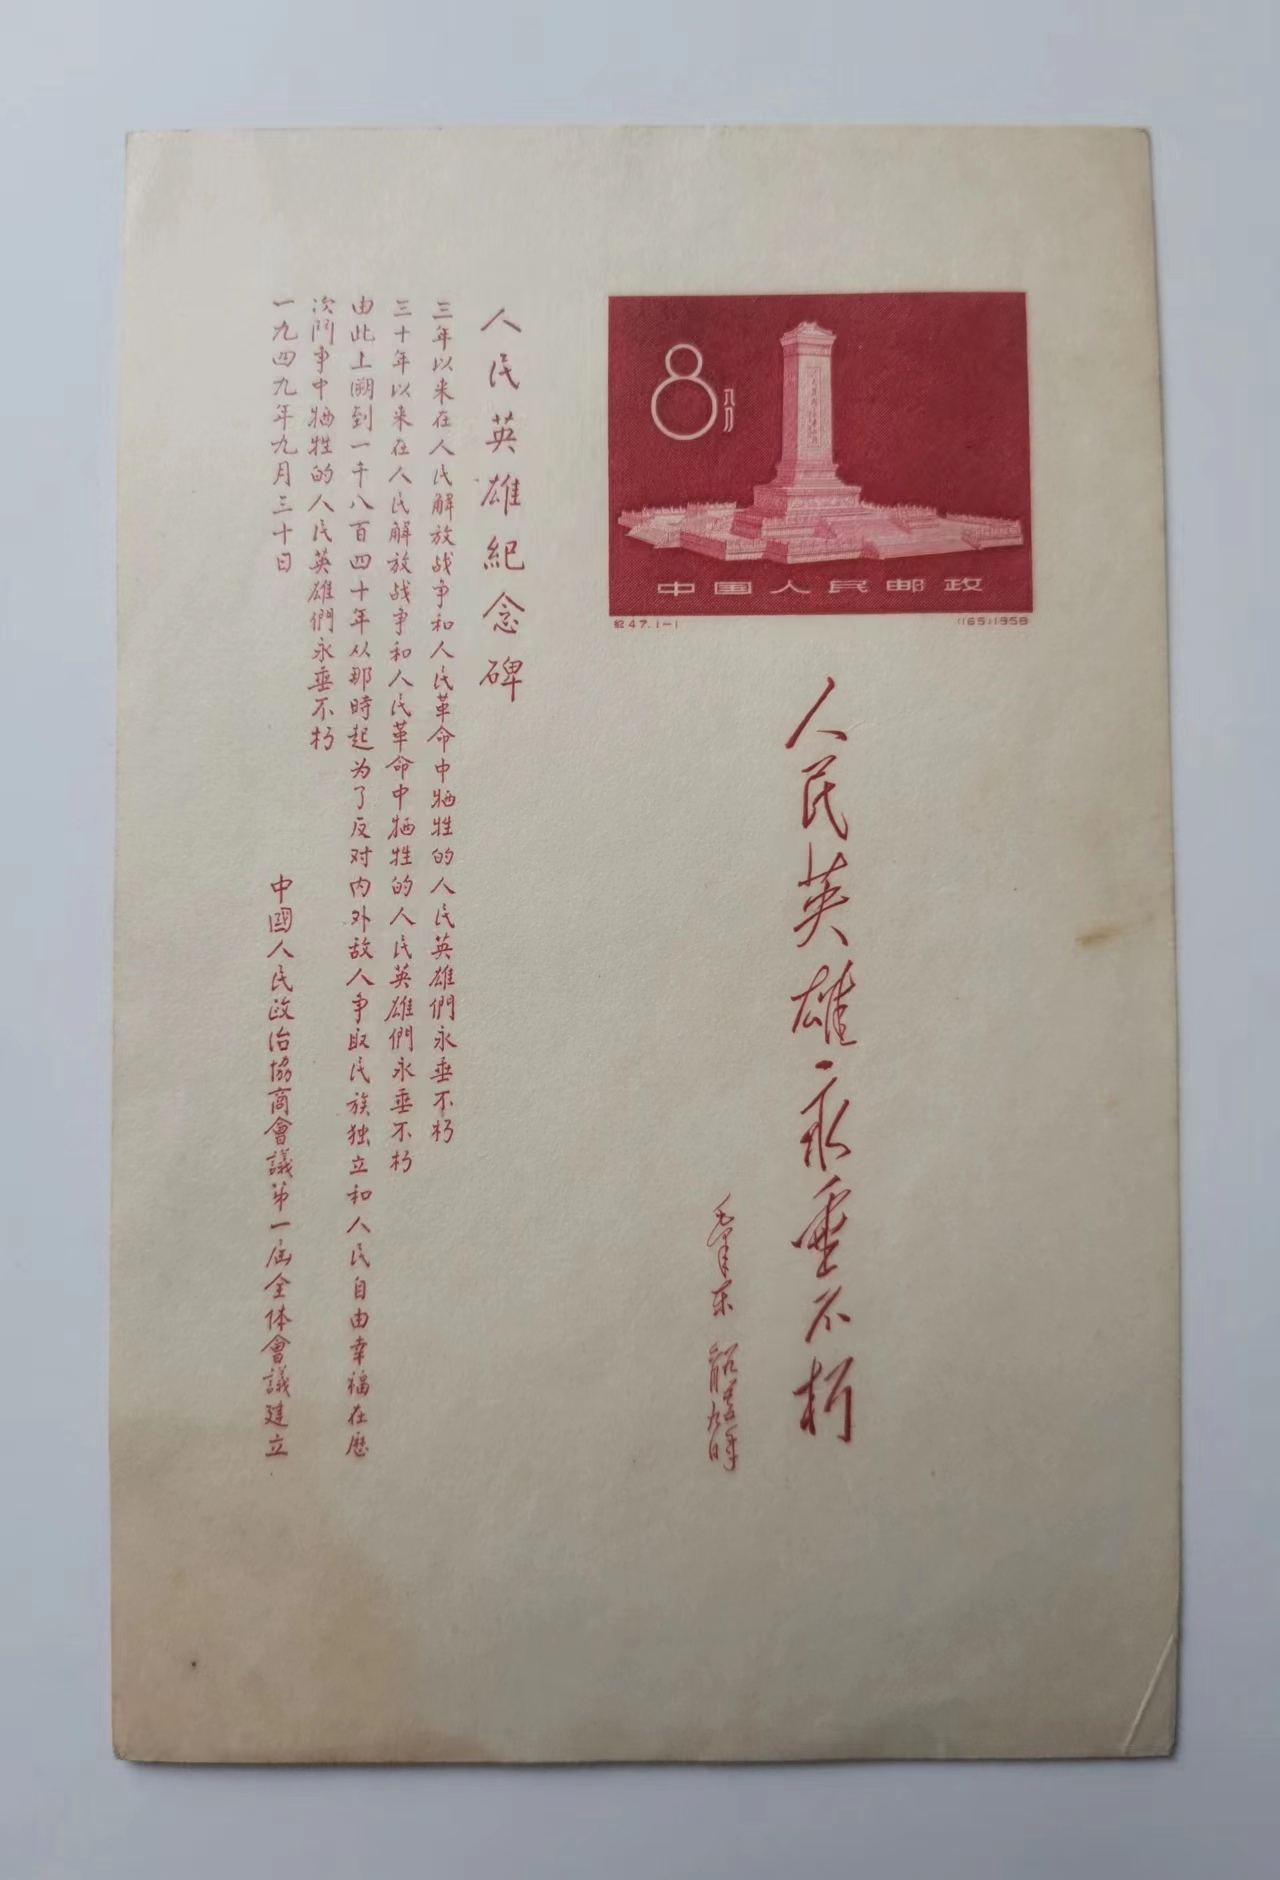 8 八分
中国人民邮政
纪47.1-1 (165)1958
人民英雄永垂不朽
毛泽东
人民英雄紀念碑
三年以来在人民解放战争和人民革命中牺牲的人民英雄們永垂不朽
三十年以来在人民解放战争和人民革命中牺牲的人民英雄們永垂不朽
由此上溯到一千八百四十年从那時起为了反对内外敌人争取民族独立和人民自由幸福在历
次鬥争中牺牲的人民英雄們永垂不朽
一九四九年九月三十日
中國人民政治協商會議第一届全体會議建立